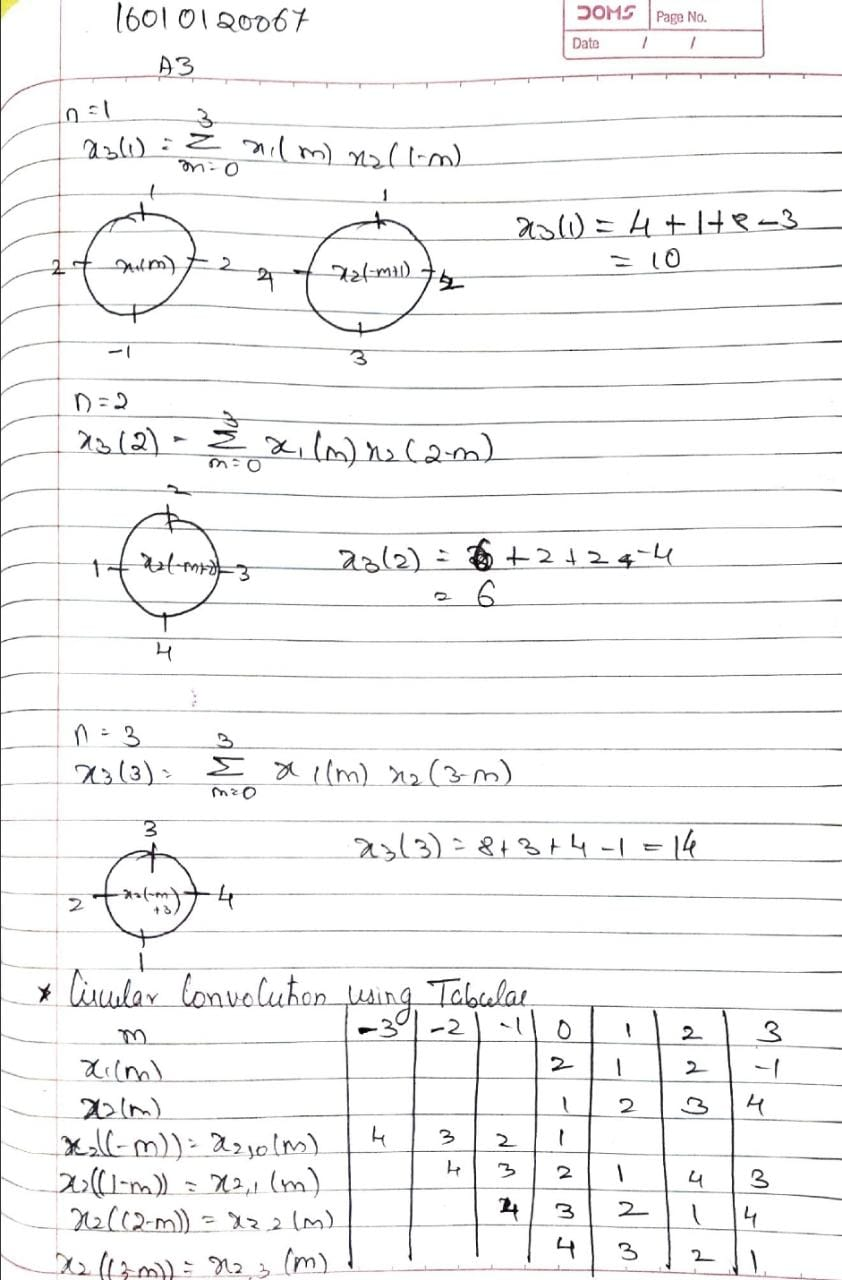 16010120067
DOMS Page No.
Date / /
A3
n=1
x3(1) = 3 Σ m=0 x1(m) x2(1-m)
1
2 x1(m) 2
-1
1
4 x2(-m+1) 2
3
x3(1) = 4+1+8-3
= 10
n=2
x3(2) = 3 Σ m=0 x1(m) x2(2-m)
2
1 x2(-m+2) 3
4
x3(2) = 6+2+2-4
= 6
n=3
x3(3) = 3 Σ m=0 x1(m) x2(3-m)
3
2 x2(-m+3) 4
1
x3(3) = 8+3+4-1 = 14
* Circular Convolution using Tabular
m -3 -2 -1 0 1 2 3
x1(m) 2 1 2 -1
x2(m) 1 2 3 4
x2((-m)) = x2,0(m) 4 3 2 1
x2((1-m)) = x2,1(m) 4 3 2 1 4 3
x2((2-m)) = x2,2(m) 4 3 2 1 4
x2((3-m)) = x2,3(m) 4 3 2 1